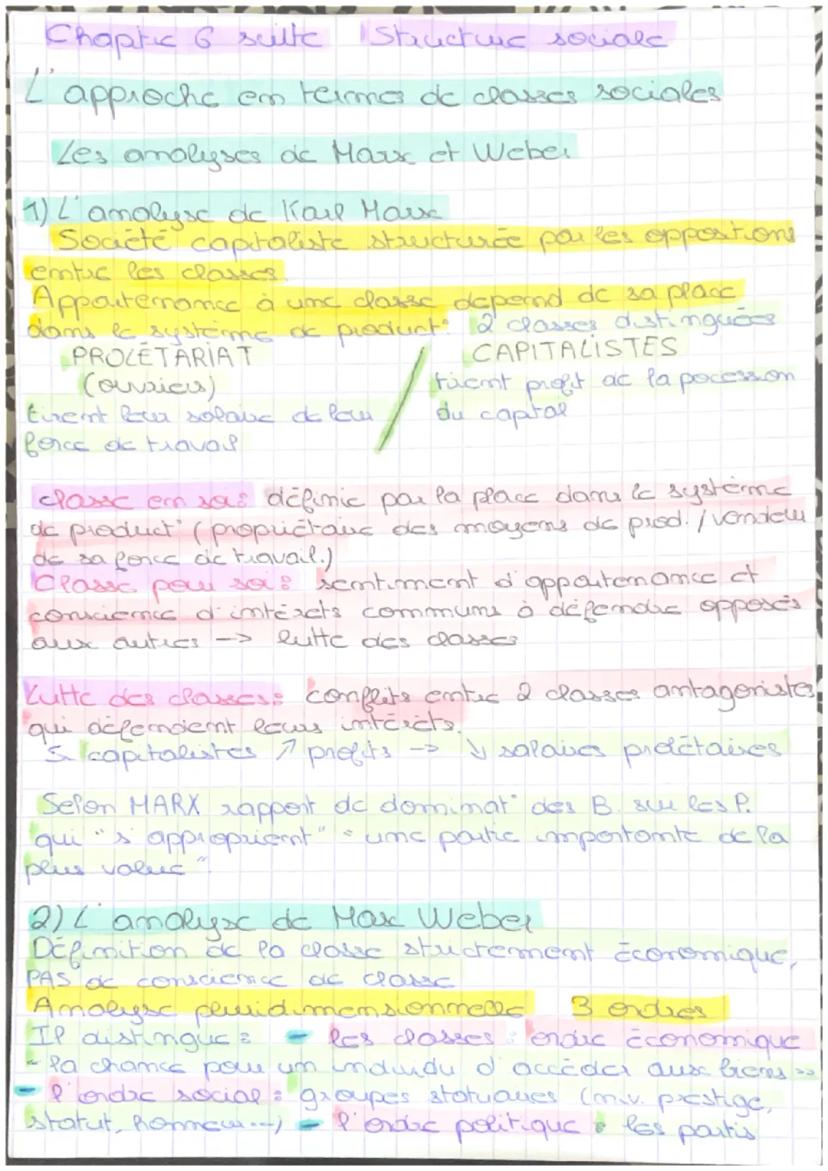 Chapitre 6 suite Structure sociale
L'approche en termes de classes sociales
Les analyses de Marx et Weber
1) L'analyse de Karl Marx
Société capitaliste structurée par les oppositions
entre les classes.
Appartenance à une classe dépend de sa place
dans le système de product° 2 classes distinguées
PROLÉTARIAT / CAPITALISTES
(ouvriers) tirent profit de la pocession
tirent leur salaire de leur du capital
force de travail
classe en soi : définie par la place dans le système
de product° (propriétaire des moyens de prod. / vendeur
de sa force de travail.)
Classe pour soi : sentiment d'appartenance et
conscience d'intérêts communs à défendre opposés
aux autres -> lutte des classes
Lutte des classes : conflits entre 2 classes antagonistes
qui défendent leurs intérêts.
↳ capitalistes ↗ profits -> ↓ salaires prolétaires
Selon MARX rapport de dominat° des B. sur les P.
qui "s'approprient" "une partie importante de la
plus value"
2) L'analyse de Max Weber
Définition de la classe strictement économique,
PAS de conscience de classe
Analyse pluridimensionnelle 3 ordres
Il distingue : - les classes : ordre économique
"la chance pour un individu d'accéder aux biens"
- l'ordre social : groupes statuaires (niv. prestige,
statut, honneur...) - l'ordre politique : les partis